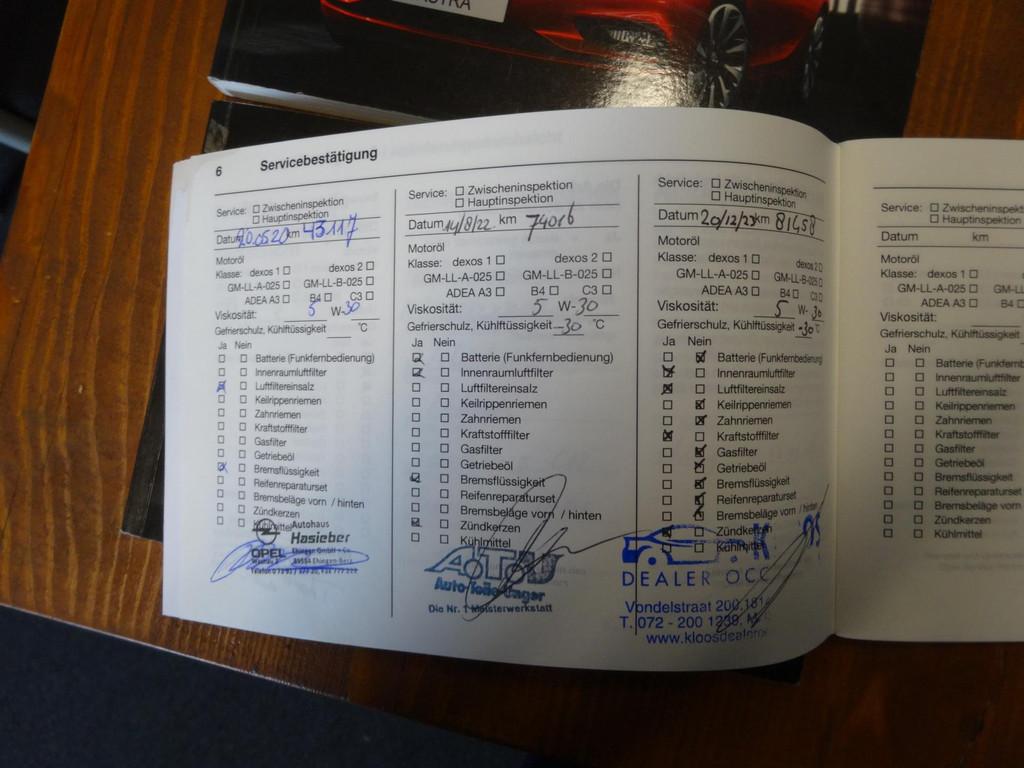 6 Servicebestätigung
Service: ☐ Zwischeninspektion
☐ Hauptinspektion
Datum 20.05.20 km 43117
Motoröl
Klasse: dexos 1 ☐ dexos 2 ☐
GM-LL-A-025 ☐ GM-LL-B-025 ☐
ADEA A3 ☐ B4 ☐ C3 ☐
Viskosität: 5 W-30
Gefrierschulz, Kühlftüssigkeit °C
Ja Nein
☐ ☐ Batterie (Funkfernbedienung)
☐ ☐ Innenraumluftfilter
☒ ☐ Luftfiltereinsalz
☐ ☐ Keilrippenriemen
☐ ☐ Zahnriemen
☐ ☐ Kraftstofffilter
☐ ☐ Gasfilter
☐ ☐ Getriebeöl
☒ ☐ Bremsflüssigkeit
☐ ☐ Reifenreparaturset
☐ ☐ Bremsbeläge vorn / hinten
☐ ☐ Zündkerzen
☐ ☐ Kühlmittel
Autohaus
Hasieber
OPEL
Service: ☐ Zwischeninspektion
☐ Hauptinspektion
Datum 14/8/22 km 74016
Motoröl
Klasse: dexos 1 ☐ dexos 2 ☐
GM-LL-A-025 ☐ GM-LL-B-025 ☐
ADEA A3 ☐ B4 ☐ C3 ☐
Viskosität: 5 W-30
Gefrierschulz, Kühlftüssigkeit -30 °C
Ja Nein
☒ ☐ Batterie (Funkfernbedienung)
☒ ☐ Innenraumluftfilter
☐ ☐ Luftfiltereinsalz
☐ ☐ Keilrippenriemen
☐ ☐ Zahnriemen
☐ ☐ Kraftstofffilter
☐ ☐ Gasfilter
☐ ☐ Getriebeöl
☒ ☐ Bremsflüssigkeit
☐ ☐ Reifenreparaturset
☐ ☐ Bremsbeläge vorn / hinten
☒ ☐ Zündkerzen
☐ ☐ Kühlmittel
ATU
Auto-Teile-Unger
Die Nr. 1 Meisterwerkstatt
Service: ☐ Zwischeninspektion
☐ Hauptinspektion
Datum 20/12/23 km 81458
Motoröl
Klasse: dexos 1 ☐ dexos 2 ☐
GM-LL-A-025 ☐ GM-LL-B-025 ☐
ADEA A3 ☐ B4 ☐ C3 ☐
Viskosität: 5 W-30
Gefrierschulz, Kühlftüssigkeit -30 °C
Ja Nein
☐ ☒ Batterie (Funkfernbedienung)
☒ ☐ Innenraumluftfilter
☒ ☐ Luftfiltereinsalz
☐ ☒ Keilrippenriemen
☐ ☒ Zahnriemen
☒ ☐ Kraftstofffilter
☐ ☒ Gasfilter
☐ ☒ Getriebeöl
☐ ☒ Bremsflüssigkeit
☐ ☒ Reifenreparaturset
☐ ☒ Bremsbeläge vorn / hinten
☒ ☐ Zündkerzen
☐ ☒ Kühlmittel
DEALER OCC
Vondelstraat 200, 181
T. 072 - 200 1239, M
www.kloosdealer
Service: ☐ Zwischeninspekt
☐ Hauptinspektion
Datum km
Motoröl
Klasse: dexos 1 ☐
GM-LL-A-025 ☐ GM-LL
ADEA A3 ☐ B4
Viskosität:
Gefrierschulz, Kühlftüssigkeit
Ja Nein
☐ ☐ Batterie (Funkfernbe
☐ ☐ Innenraumluftfilter
☐ ☐ Luftfiltereinsalz
☐ ☐ Keilrippenriemen
☐ ☐ Zahnriemen
☐ ☐ Kraftstofffilter
☐ ☐ Gasfilter
☐ ☐ Getriebeöl
☐ ☐ Bremsflüssigkeit
☐ ☐ Reifenreparaturset
☐ ☐ Bremsbeläge vorn / h
☐ ☐ Zündkerzen
☐ ☐ Kühlmittel